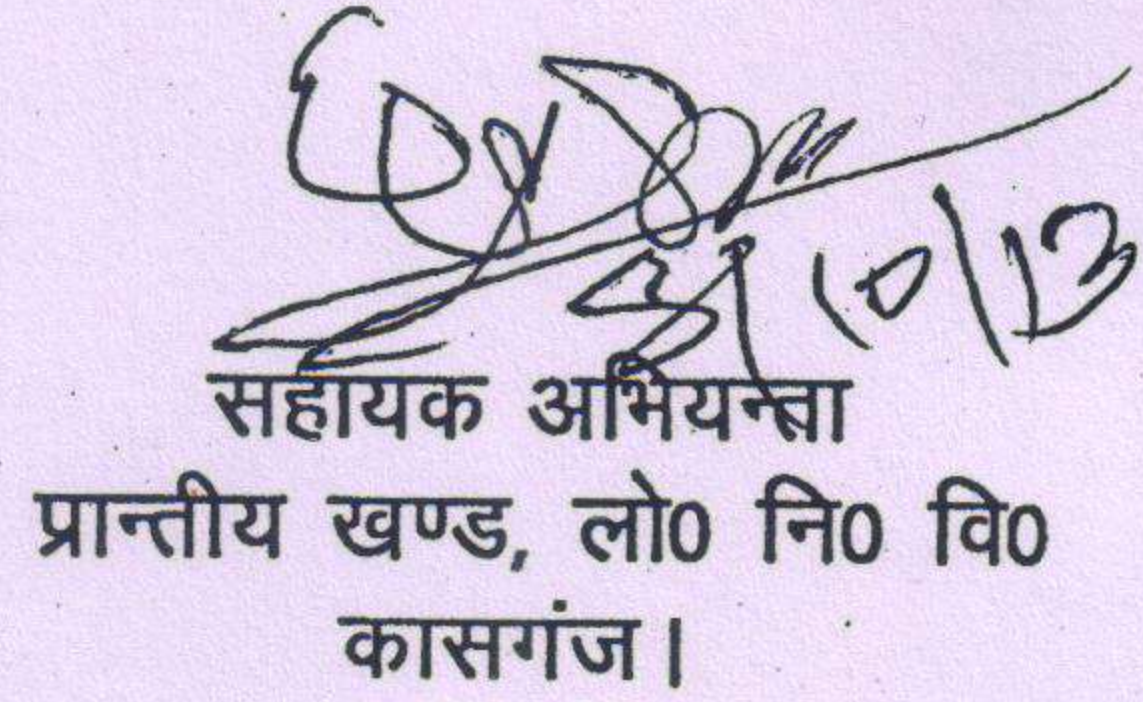 /10/13
सहायक अभियन्ता
प्रान्तीय खण्ड, लो0 नि0 वि0
कासगंज।